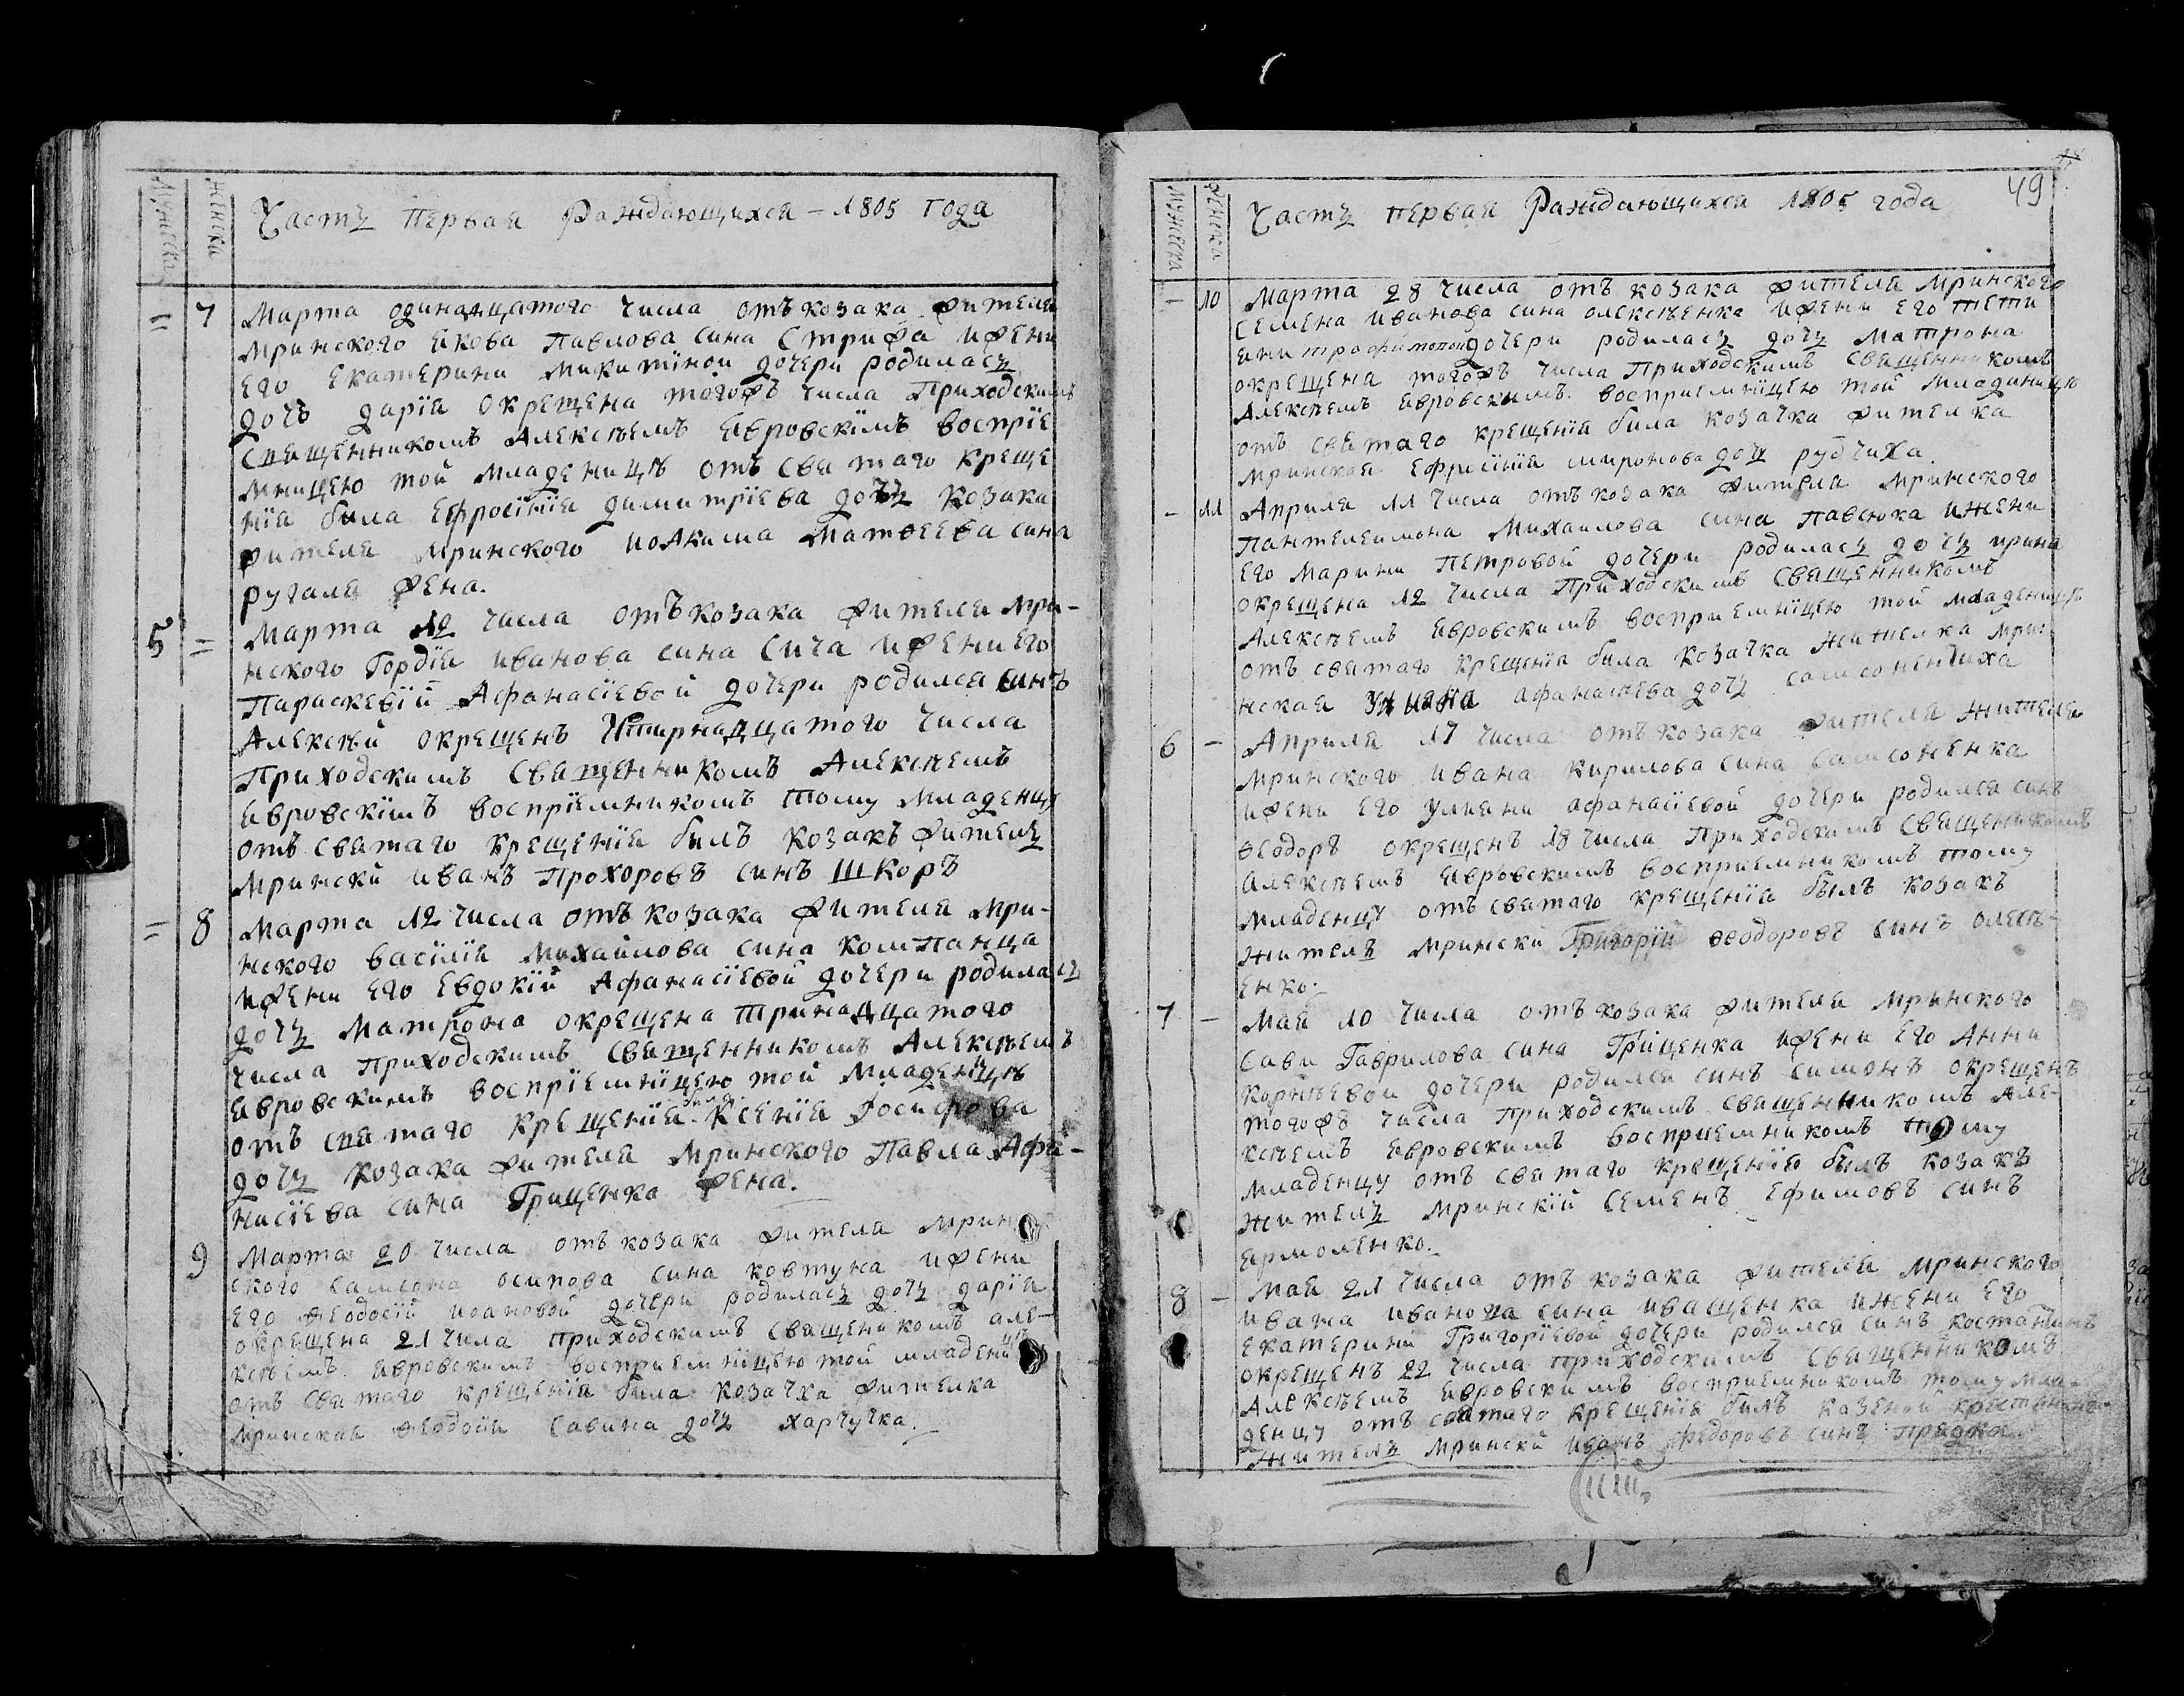 мужеска
женска
Часть Первая Раждающихся – 1805 года
= 7 Марта одинадцатого числа отъ козака жителя
Мринского Якова Павлова сина Стрижа ижени
его Екатерини Микитіной дочери родилась
дочь дарія окрещена тогожъ числа Приходскимъ
Священникомъ Алексѣемъ Явровскімъ воспріе
мніцею той младеницѣ отъ святаго креще
нія била Ефросінія димитріева дочь козака
жителя мринского Иоакима Матѳеева сина
ругаля жена.
5 = Марта 12 числа отъ козака жителя Мри-
нского Гордія иванова сина Сича ижени его
Параскевій Афанасіевой дочери родился синъ
Алексѣй окрещенъ Чтирнадцатого числа
Приходскимъ Священникомъ Алексѣемъ
Явровскімъ воспріемникомъ тому младенцу
отъ святаго крещенія билъ козакъ житель
Мрински иванъ Прохоровъ синъ Шкоръ
= 8 Марта 12 числа отъ козака жителя Мри-
нского василія Михайлова сина компанца
ижени его Евдокій Афанасіевой дочери родилась
дочь Матрона окрещена тринадцатого
числа приходскимъ священникомъ Алексѣемъ
Явровскимъ воспріемніцею той младеницѣ
отъ святаго крещенія била Ксенія Іосифова
дочь козака жителя Мринского Павла Афа-
насіева сина Грищенка жена.
9 Марта 20 числа отъ козака жителя Мрин
ского самсона осипова сина ковтуна ижени
его ѳеодосій иоановой дочери родилась дочь дарія
окрещена 21 чила приходскимъ священикомъ але-
ксѣемъ Явровскимъ воспріемніцею той младеницѣ
отъ святаго крещенія била козачка жителка
мринская ѳеодосія савина дочь харчучка.
49
мужеска
женска
Часть первая Раждающихся 1805 года
– 10 Марта 28 числа отъ козака жителя Мринского
Семена иванова сина олексѣенка ижени его тети
яни трофимовой дочери родилась дочь Матрона
окрещена тогожъ числа Приходскимъ священникомъ
Алексѣемъ Явровскимъ. воспріемніцею той младиницѣ
отъ святаго крещенія била козачка жителка
мринская ефросінія миронова дочь рудчиха.
– 11 Априля 11 числа отъ козака жителя мринского
пантелеимона Михаилова сина павсюка ижени
его Марини Петровой дочери родилась дочь ирина
окрещена 12 числа Приходскимъ священникомъ
Алексѣемъ Явровскимъ воспріемніцею той младеницѣ
отъ святаго крещенія била козачка жителка мрин
нская Улияна афанасіева дочь самсоненчиха
6 – Априля 17 числа отъ козака жителя жителя
мринского ивана кирилова сина самсоненка
ижени его улияни афанасіевой дочери родился синъ
ѳеодоръ окрещенъ 18 числа Приходскимъ священикомъ
алексѣемъ Явровскимъ воспріемникомъ тому
младенцу отъ святаго крещенія былъ козакъ
житель мрински Григорій ѳеодоровъ синъ олексѣ-
енко.
7 – Мая 10 числа отъ козака жителя мринского
Сави Гаврилова сина Гріценка ижени его Анни
корнѣевой дочери родился синъ симонъ окрещенъ
тогожъ числа приходскимъ священникомъ Але-
ксѣемъ Явровскимъ воспріемникомъ тому
младенцу отъ святаго крещенія былъ козакъ
житель мринскій Семенъ ефимовъ синъ
ярмоленко.
8 – Мая 21 числа отъ козака жителя мринского
ивана иванова сина иващенка ижени его
екатерини Григоріевой дочери родился синъ костантинъ
окрещенъ 22 числа приходскимъ священникомъ
Алексѣемъ Явровскимъ воспріемникомъ тому мла-
денцу отъ святаго крещенія билъ казеной крестьянинъ
житель мрински иванъ федоровъ синъ прядка